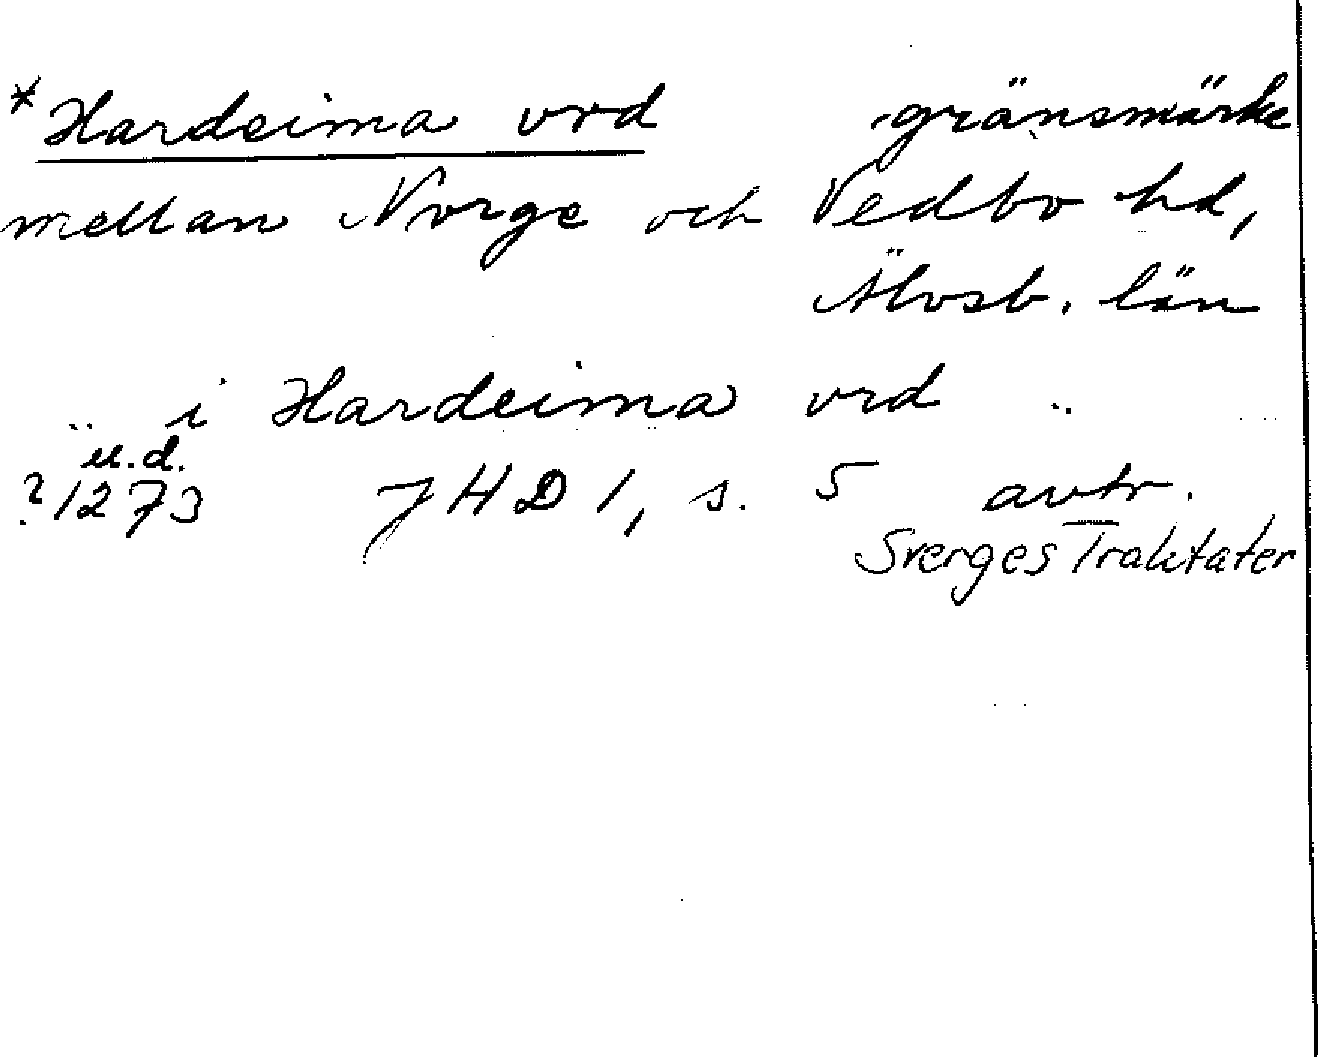 *Hardeima vrd gränsmärke
mellan Norge och Vedbo hd,
Älvsb. län
.. i Hardeima vrd ..
u.d.
?1273 JHD 1, s. 5 avtr.
Sverges Traktater